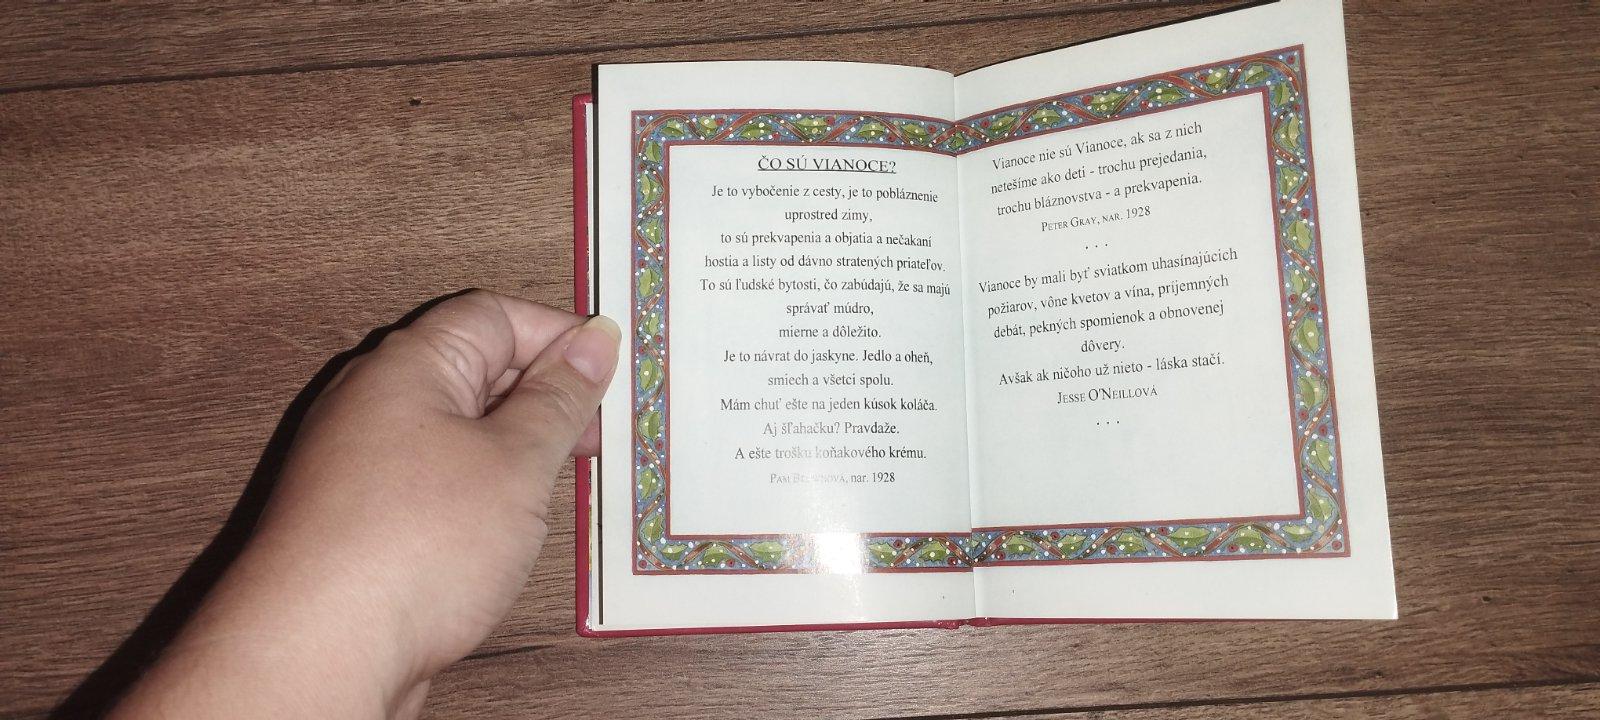 ČO SÚ VIANOCE?
Je to vybočenie z cesty, je to pobláznenie
uprostred zimy,
to sú prekvapenia a objatia a nečakaní
hostia a listy od dávno stratených priateľov.
To sú ľudské bytosti, čo zabúdajú, že sa majú
správať múdro,
mierne a dôležito.
Je to návrat do jaskyne. Jedlo a oheň,
smiech a všetci spolu.
Mám chuť ešte na jeden kúsok koláča.
Aj šľahačku? Pravdaže.
A ešte trošku koňakového krému.
PAM BROWNOVÁ, nar. 1928
Vianoce nie sú Vianoce, ak sa z nich
netešíme ako deti - trochu prejedania,
trochu bláznovstva - a prekvapenia.
PETER GRAY, NAR. 1928
. . .
Vianoce by mali byť sviatkom uhasínajúcich
požiarov, vône kvetov a vína, príjemných
debát, pekných spomienok a obnovenej
dôvery.
Avšak ak ničoho už nieto - láska stačí.
JESSE O'NEILLOVÁ
. . .